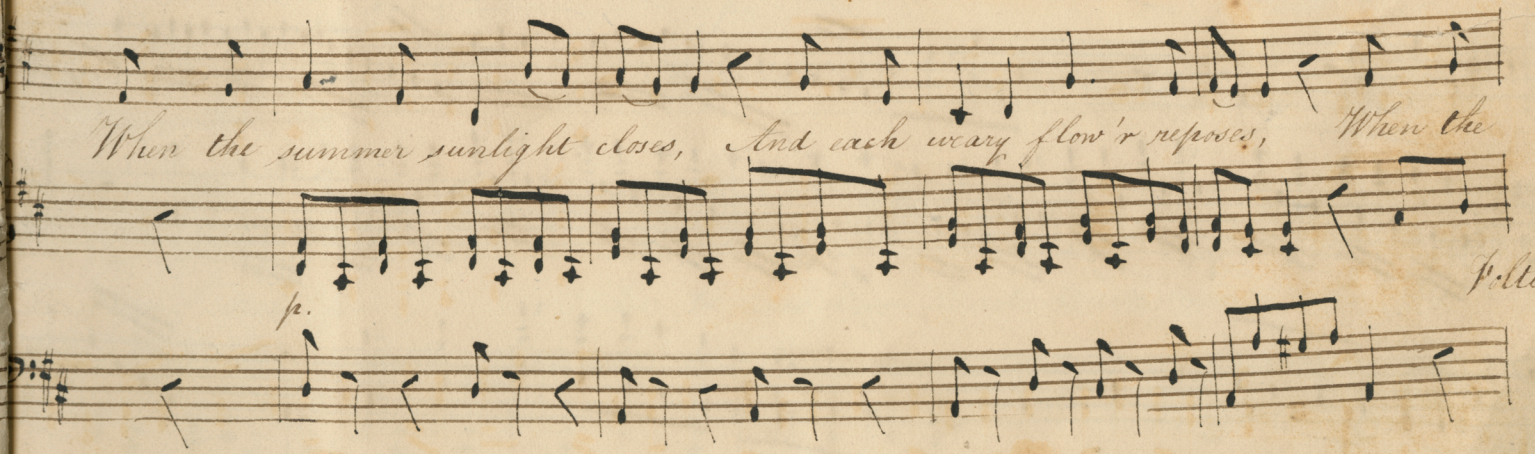 When the summer sunlight closes, And each weary flow'r reposes, When the
p.